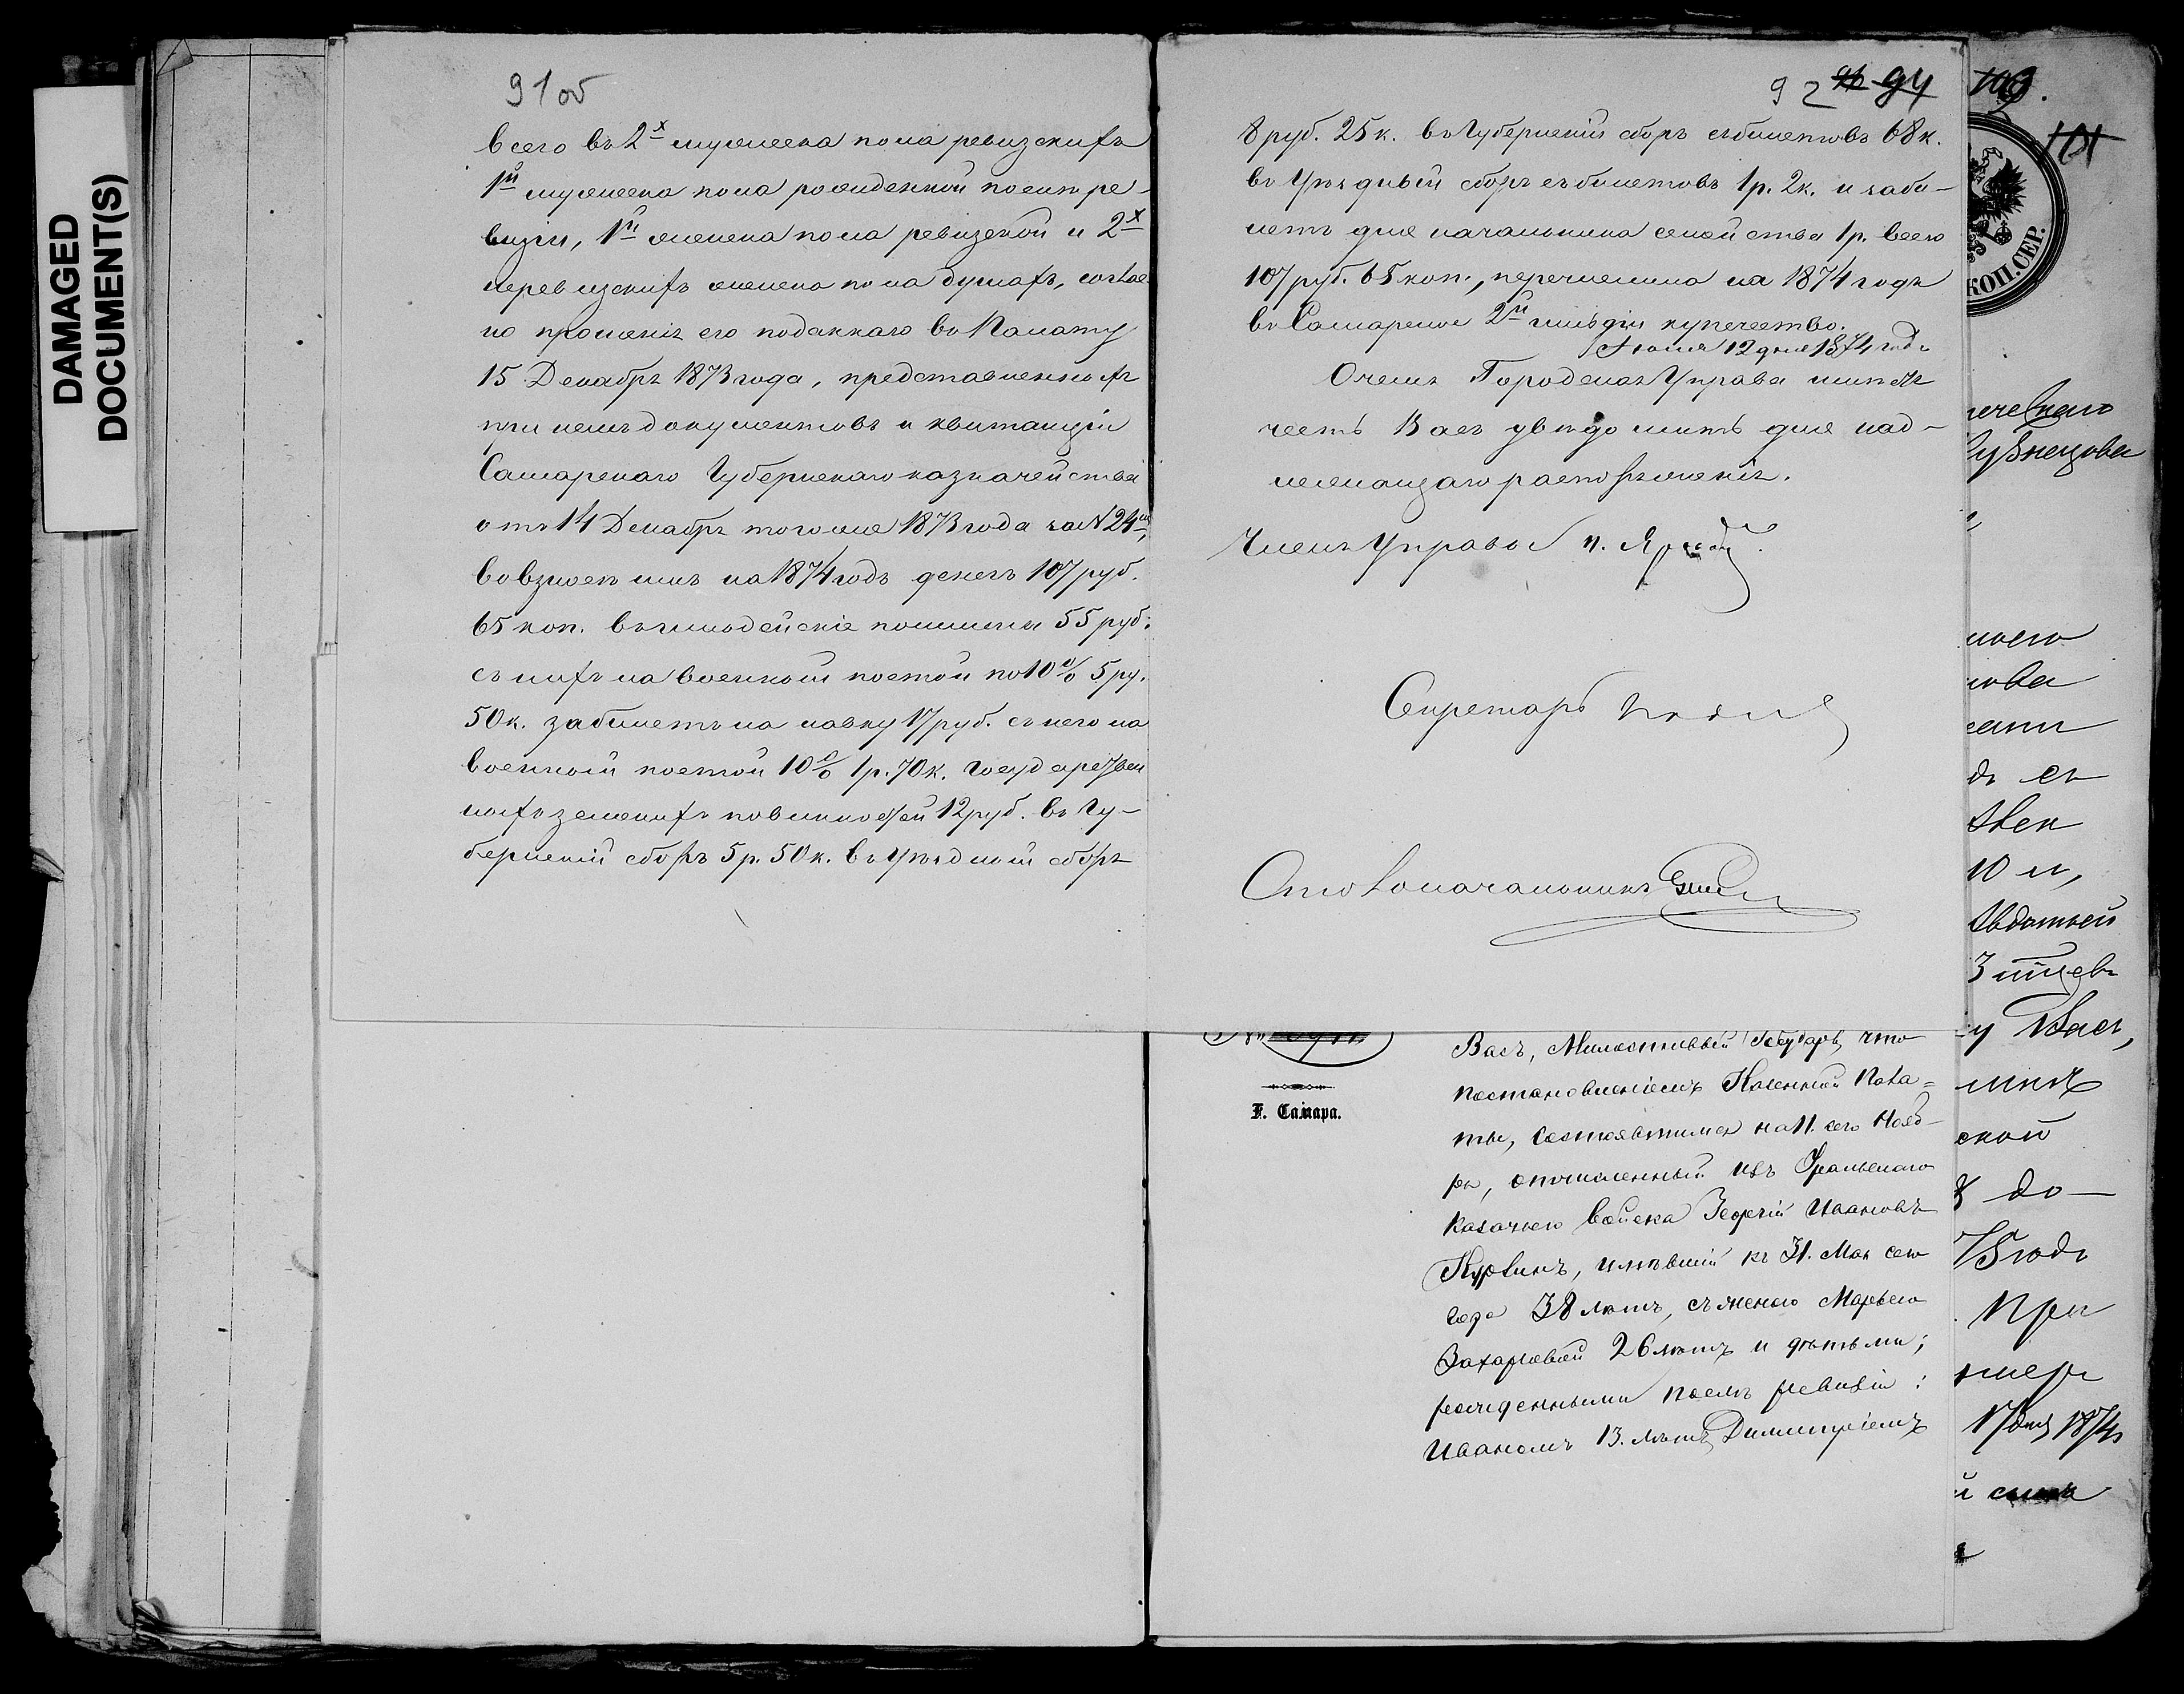 DAMAGED
DOCUMENT(S)
91 об
всего въ 2х мужеска пола ревизскихъ
1й мужеска пола рожденной послѣ ре-
визіи, 1й женска пола ревизской и 2х
неревизскихъ женска пола душахъ, соглас
но прошенія его поданнаго въ Палату
15 Декабря 1873 года, представленныхъ
при немъ документовъ и квитанціи
Самарскаго Губернскаго казначейства
отъ 14 Декабря того же 1873 года за № 24
во взносѣ имъ на 1874 годъ денегъ 107 руб.
65 коп. въ гильдейскіе пошлины 55 руб.
съ нихъ на военный постой по 10% 5 ру.
50 к. за билетъ на лавку 17 руб. съ него на
военный постой 10% 1 р. 70 к. государствен
ныхъ земскихъ повинностей 12 руб. въ Гу-
бернскій сборъ 5 р. 50 к. въ Уѣздный сборъ
92 94
8 руб. 25 к. въ Губернскій сборъ съ билетовъ 68 к.
въ Уѣздный сборъ съ билетовъ 1 р. 2 к. и за би-
летъ для начальника семейства 1 р. всего
107 руб. 65 коп., перечислена на 1874 годъ
въ Самарское 2й гильдіи купечество.
12 дня 1874 года
О чемъ Городская Управа имѣетъ
честь Васъ увѣдомить для над-
лежащаго распоряженія.
Членъ Управы
Секретарь
Столоначальникъ
Г. Самара.
Васъ, Милостивый Государь, что
постановленіемъ Казенной Пала-
ты, состоявшимся на 11. сего Нояб-
ря, отчисленный изъ Уральскаго
Казачьяго Войска Георгій Ивановъ
имѣвшій къ 31. Мая сего
года 38 лѣтъ, съ женою Марьею
Захаровой 26 лѣтъ и дѣтьми;
рожденными послѣ ревизіи:
Иваномъ 13. лѣтъ, Димитріемъ
101
КОП.СЕР.
Кузнецова
моего
10 л,
Авдотьей
Васъ,
ской
до-
При
17 дня 1874